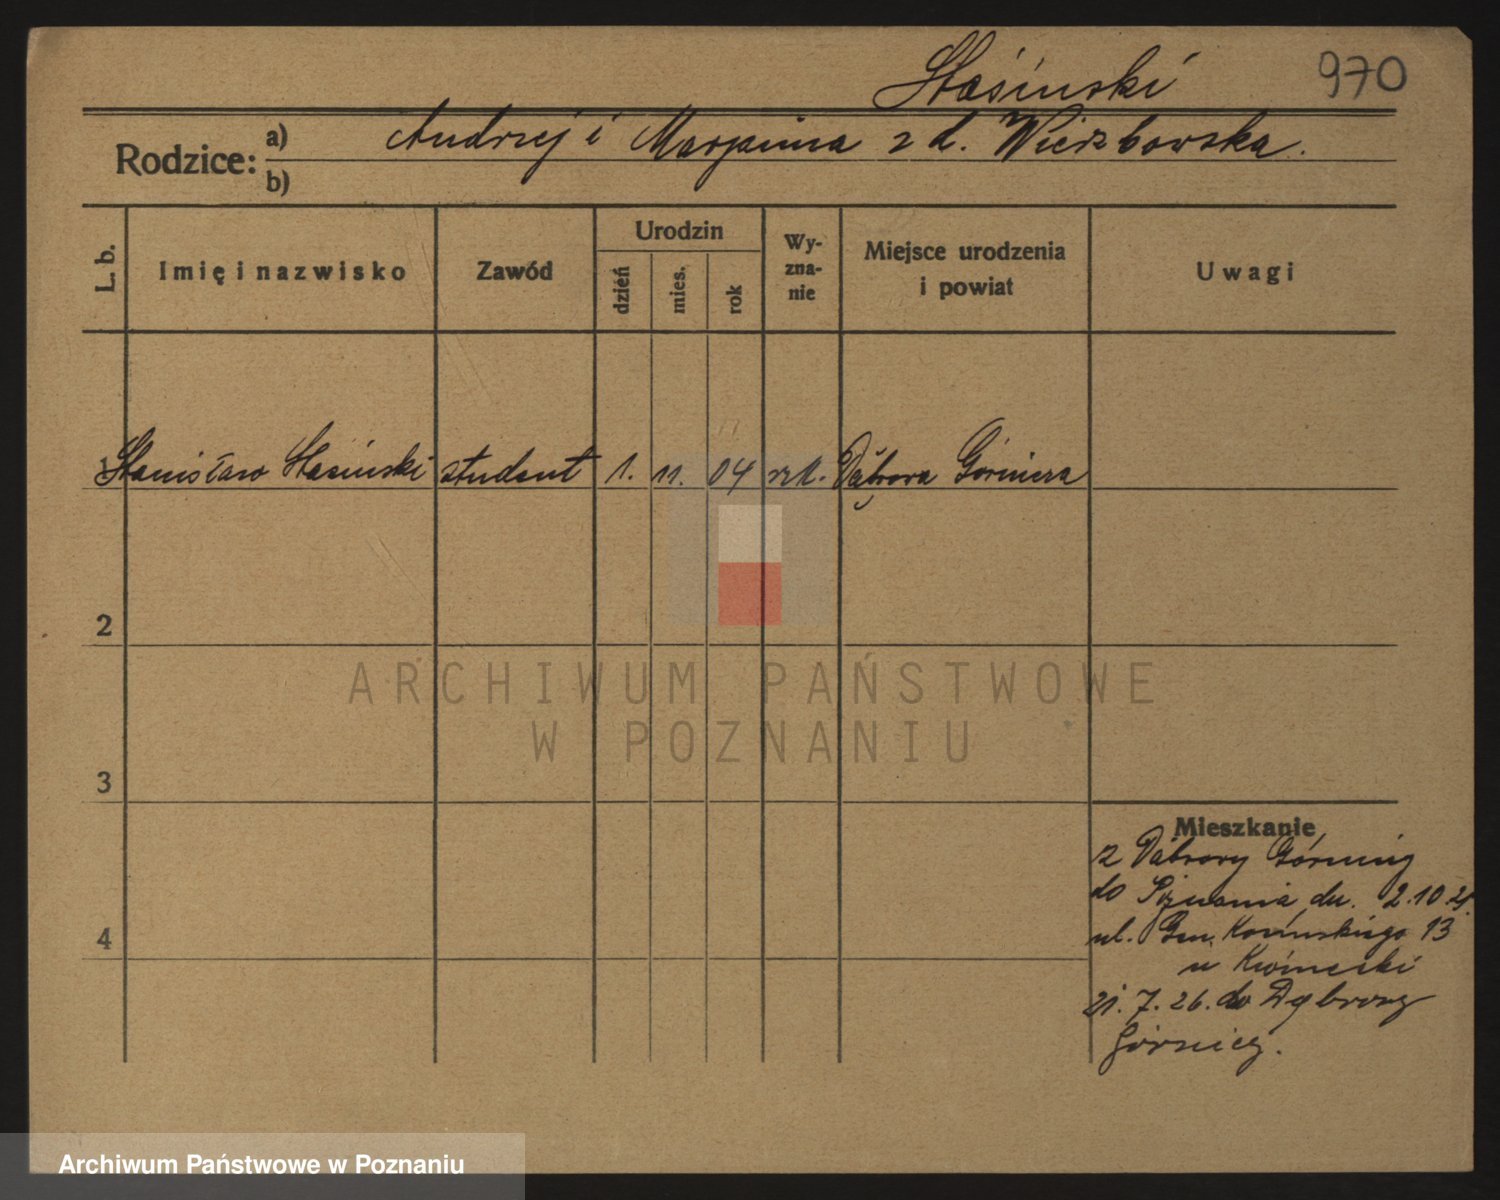 Stasinski 970
Rodzice: a) Andrzej i Marjanna z d. Wierzbowska.
b)
L. b. Imię i nazwisko Zawód Urodzin dzień mies. rok Wy-zna-nie Miejsce urodzenia i powiat Uwagi
1 Stanisław Stasiński student 1. 11. 04 rzk. Dąbrowa Górnicza
2
ARCHIWUM PAŃSTWOWE
W POZNANIU
3
Mieszkanie
z Dąbrowy Górniczej
do Poznania dn. 2.10.
4
ul. Gen. 13
u
21. 7. 26. do Dąbrowy
Górniczej.
Archiwum Państwowe w Poznaniu